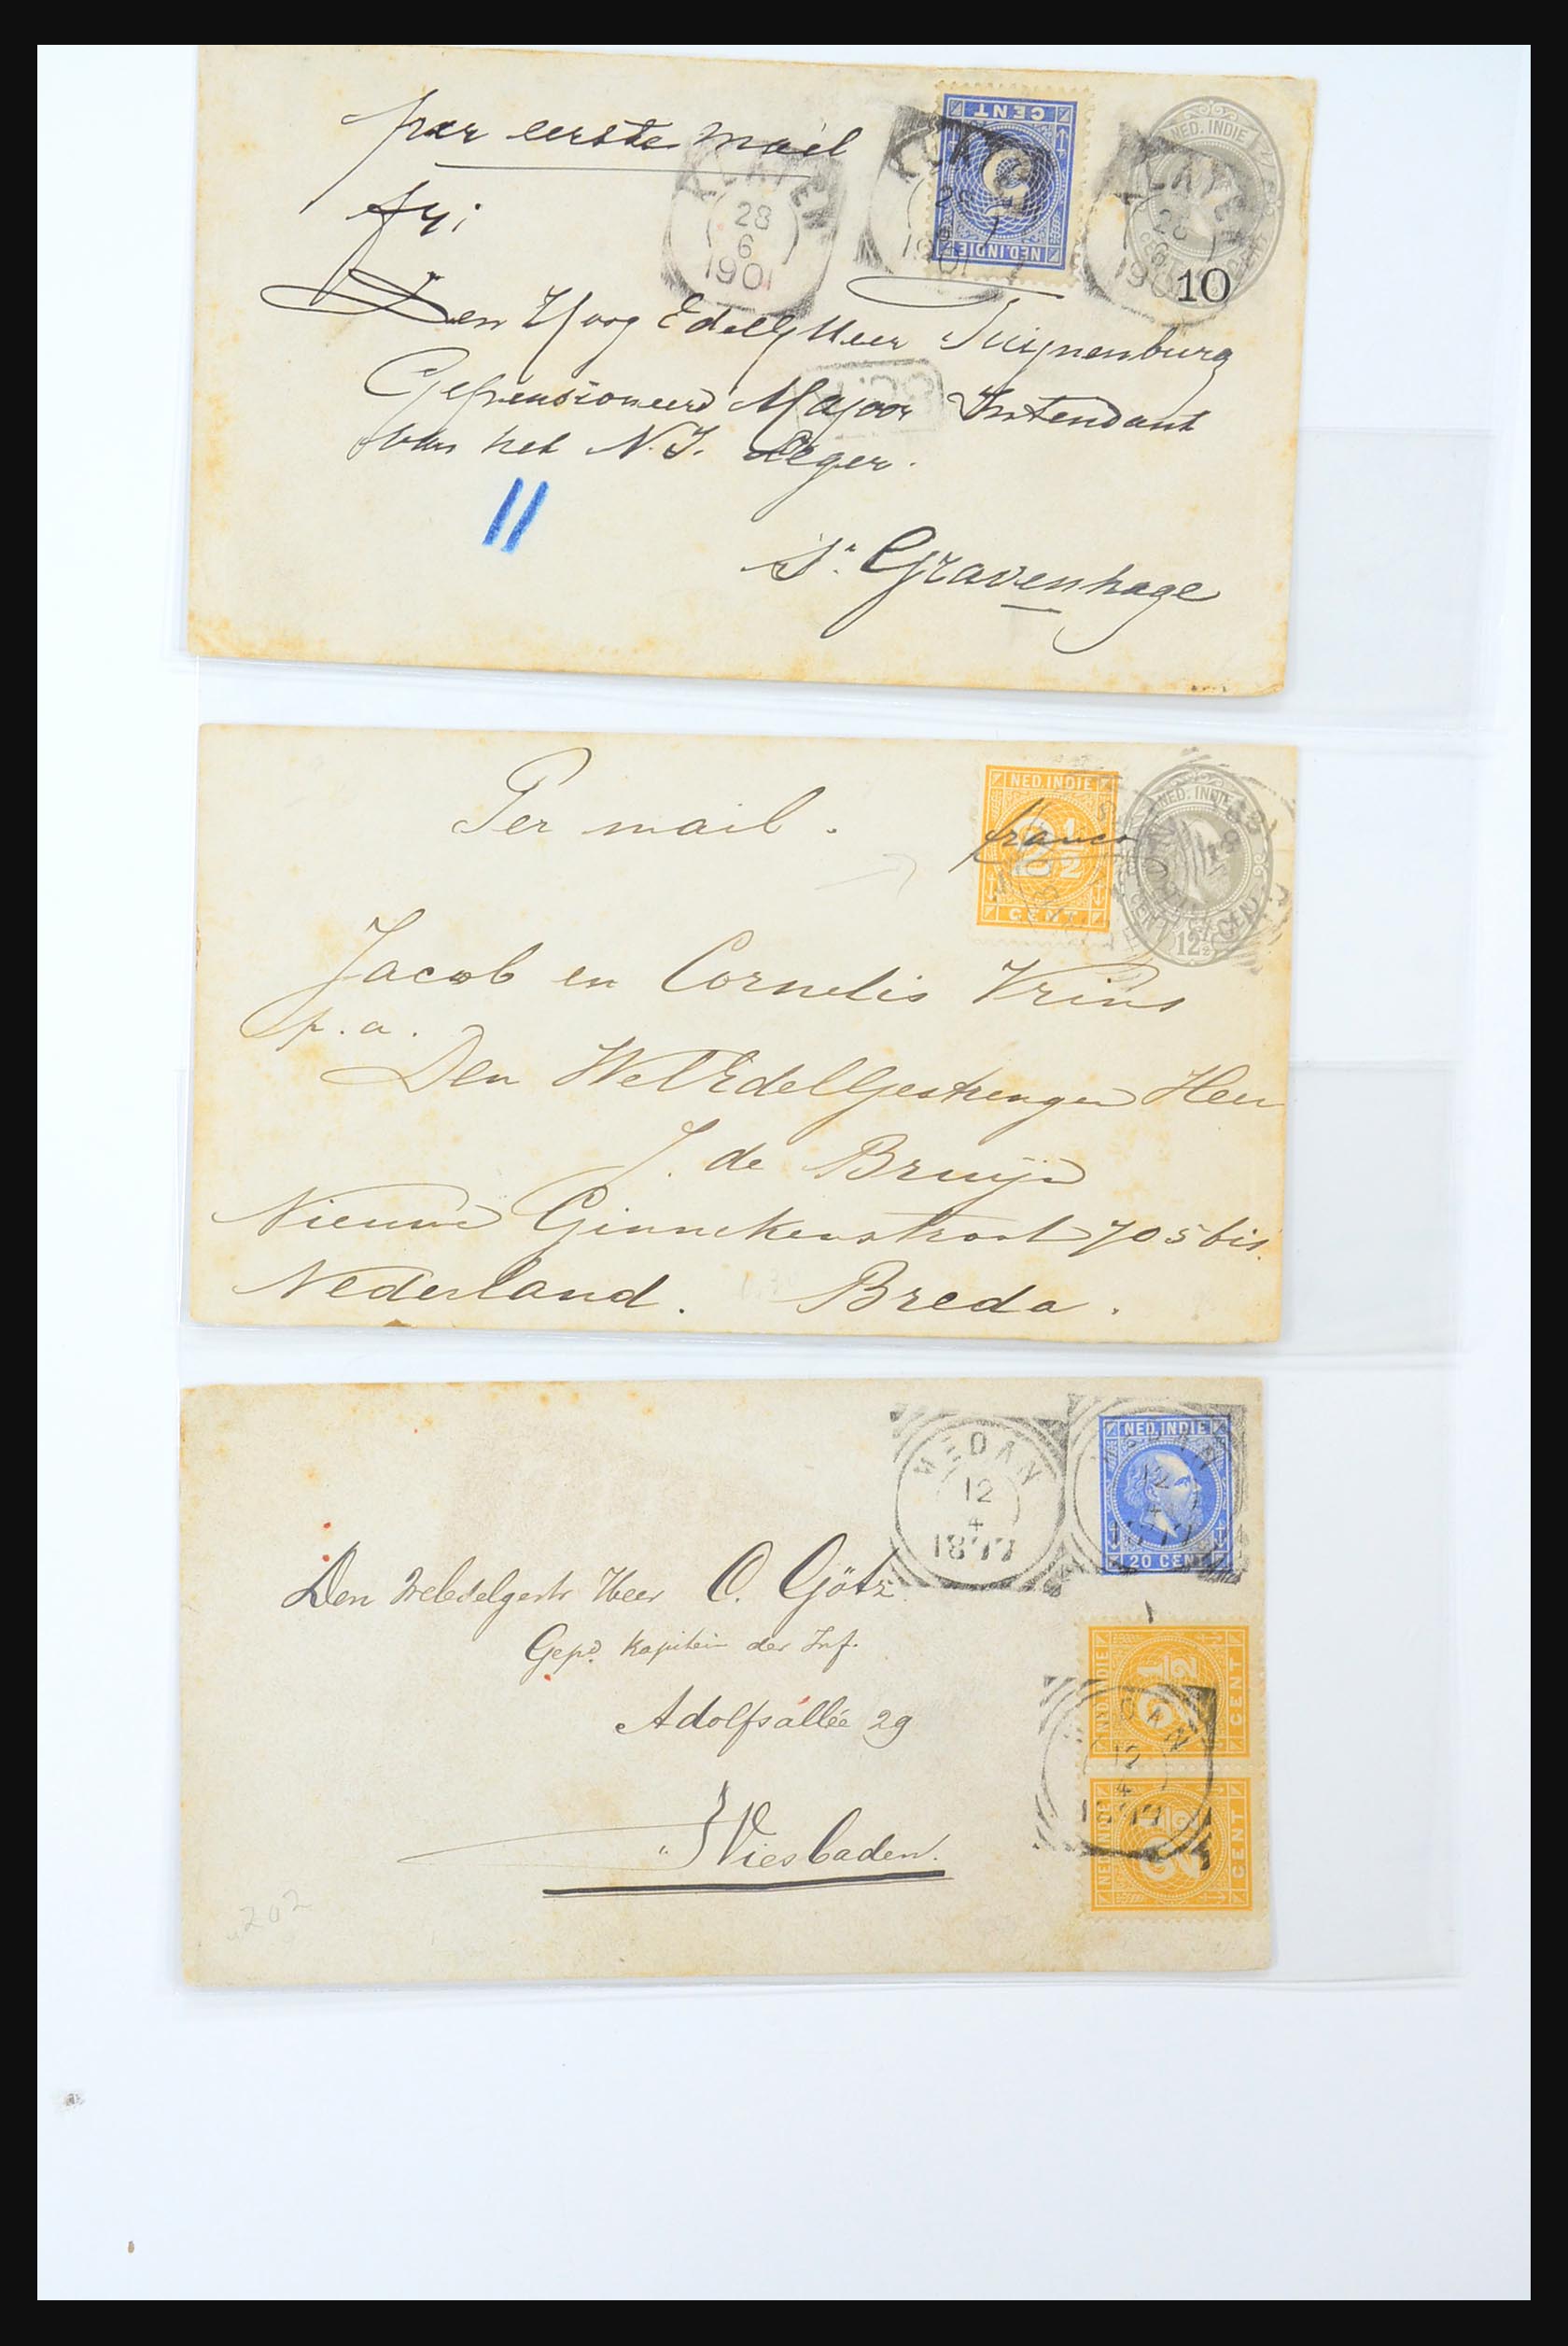 per eerste mail
CENT
5
NED.INDIE
NED. INDIE
10
KLATEN
28
6
1901
KLATEN
28
6
1901
KLATEN
28
6
190
Den Hoog EdelG Heer Tuijnenburg
Gepensioneerd Majoor Intendant
van het N.I. Leger.
11
s' Gravenhage
Per mail.
NED.INDIE
2 1/2
CENT
franco
NED. INDIE
CENT
CENT
12
Jacob en Cornelis Vrins
p.a.
Den WelEdelGestrengen Heer
J. de Bruijn
Nieuwe Ginnekenstraat 705 bis.
Nederland. Breda.
MEDAN
12
4
1897
NED.INDIE
20 CENT
Den weledelgestr Heer C. Götz
Gepd. Kapitein der Inf.
Adolfsallée 29
Wiesbaden.
NED.INDIE
2 1/2
CENT
DAN
12
4
NED.INDIE
2 1/2
CENT
202